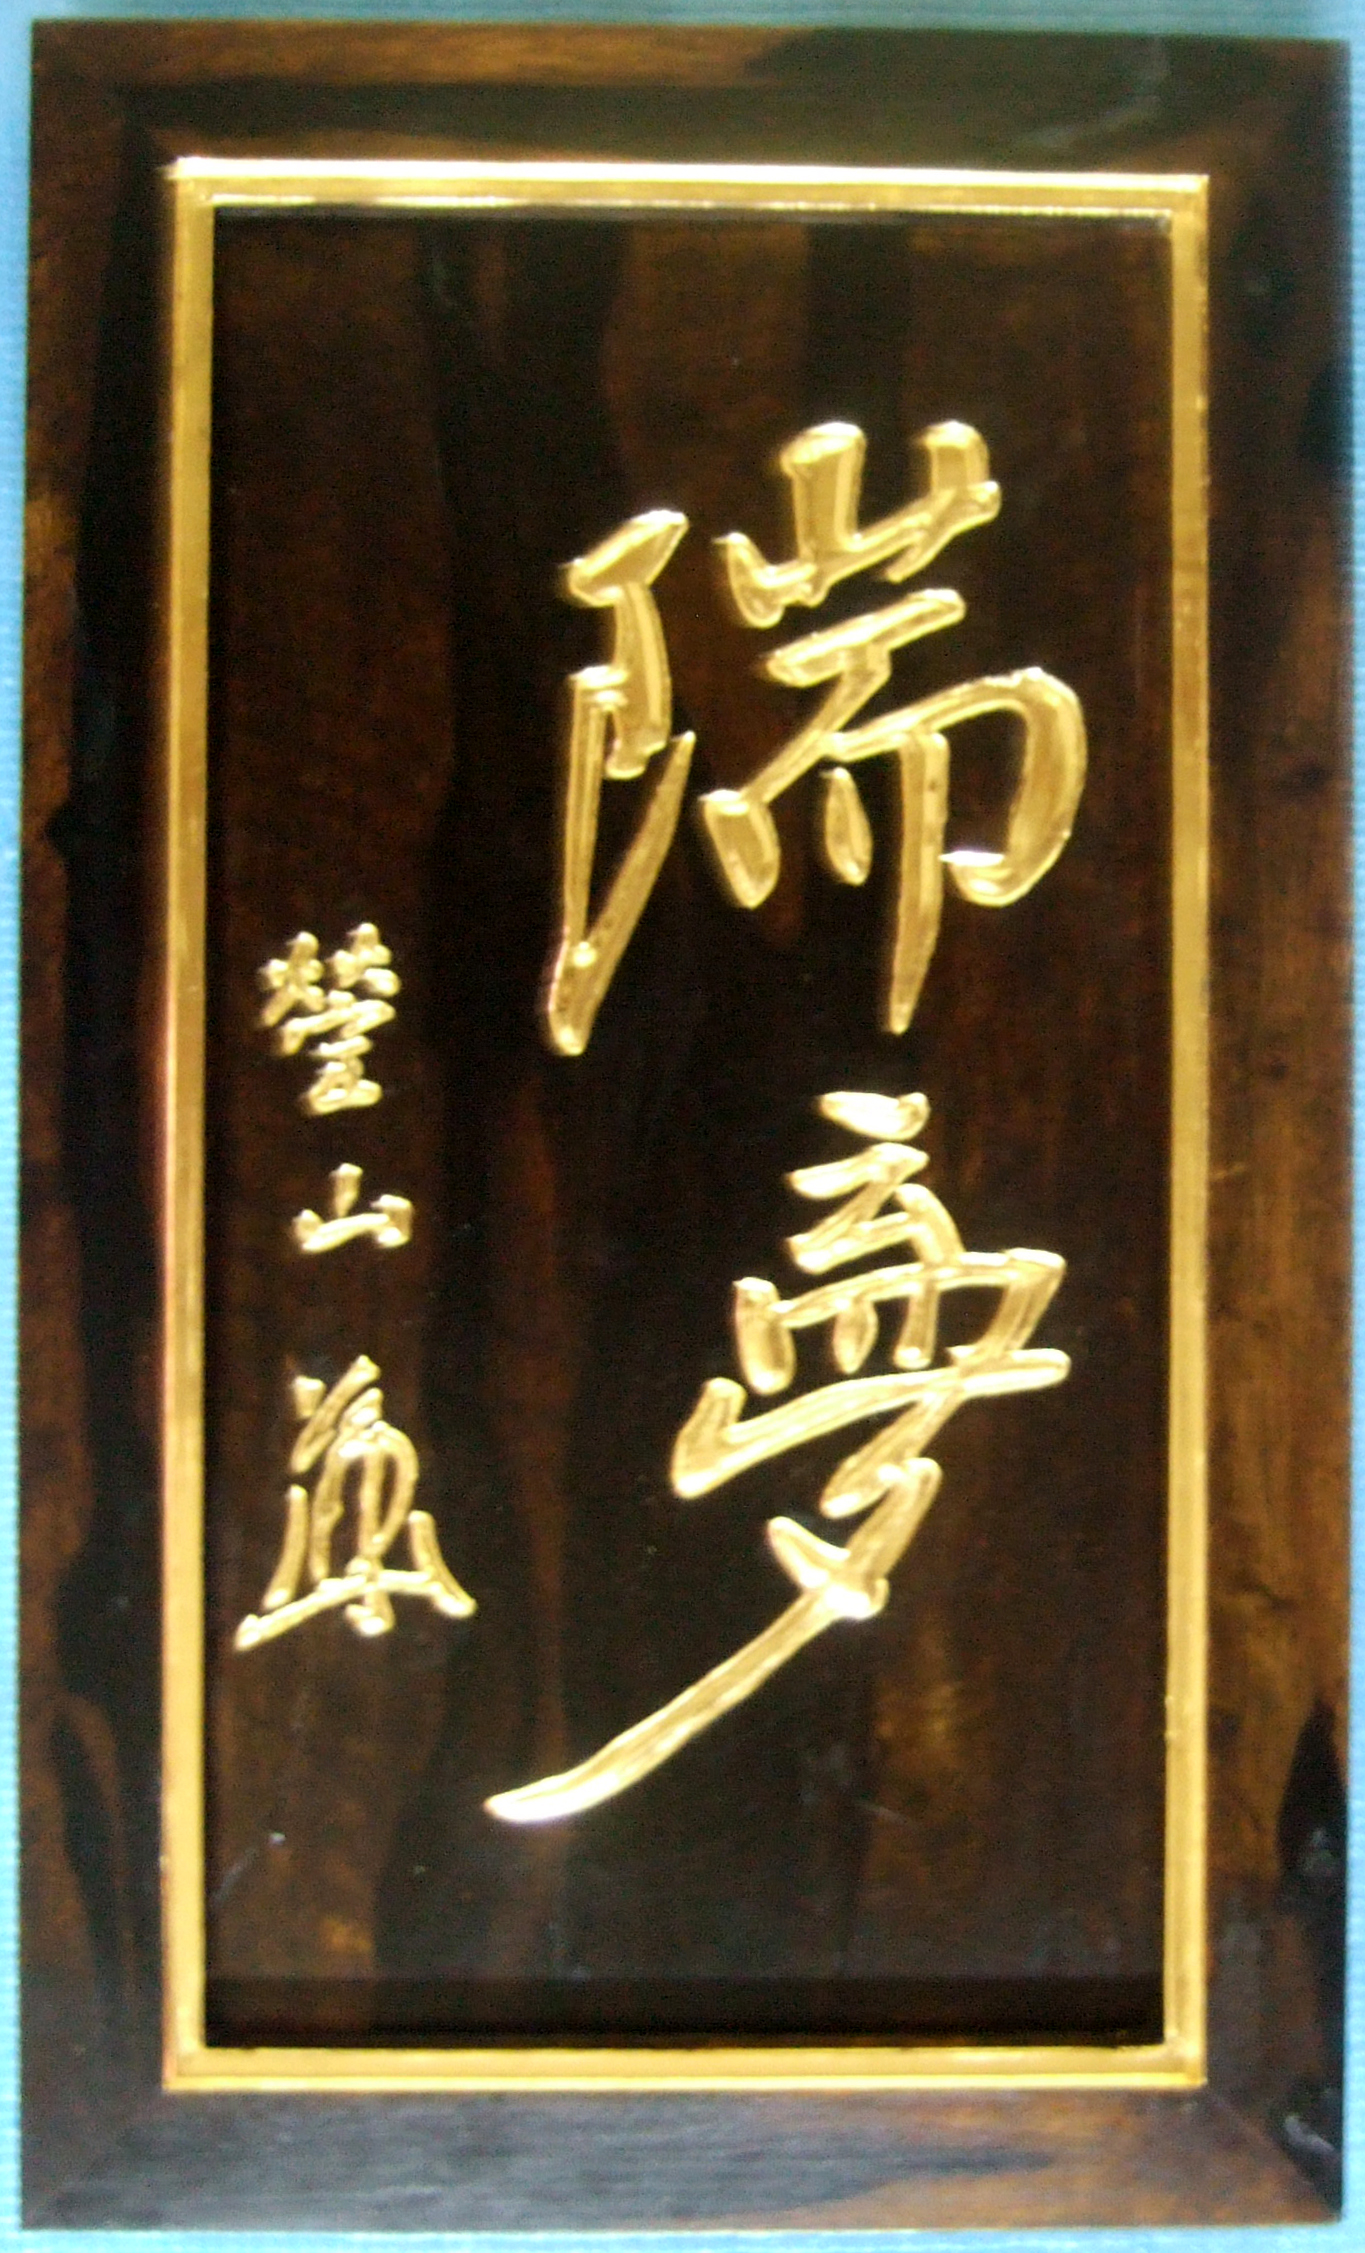 瑞夢
瑩山